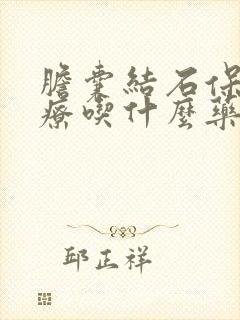 膽囊結石保
療喫什麼藥
邱正祥